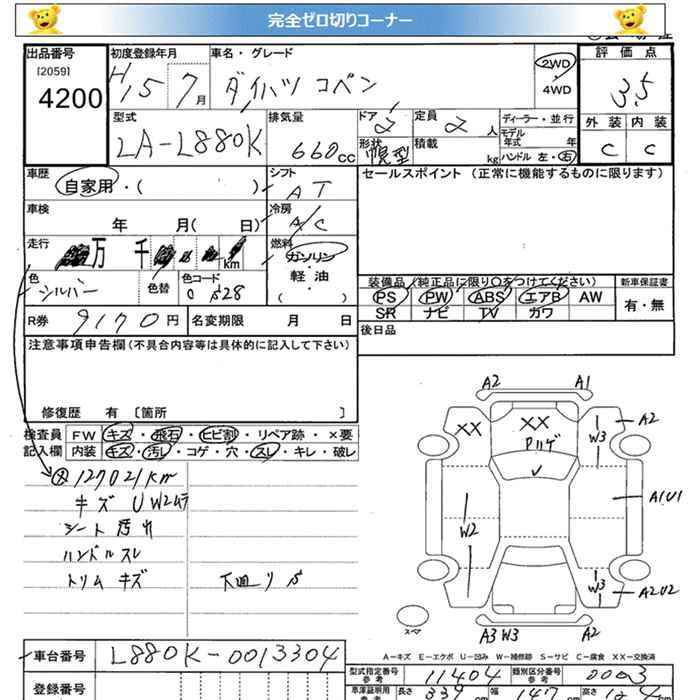 完全ゼロ切りコーナー
出品番号 初度登録年月 車名・グレード 2WD 評価点
[2059] H15 7月 ダイハツ コペン ・ 3.5
4200 4WD
型式 排気量 ドア 2 定員 2人 ディーラー・並行 外装 内装
LA-L880K 660cc 形状 幌型 積載 kg モデル年式 年 C C
ハンドル 左・右
車歴 シフト セールスポイント (正常に機能するものに限ります)
自家用・( ) AT
車検 冷房
年 月( 日) A/C
走行 燃料
万 千 km ガソリン
色 色替 色コード 軽・油
シルバー S28 ( )
装備品(純正品に限り○をつけてください) 新車保証書
PS PW ABS エアB AW 有・無
SR ナビ TV カワ
R券 9170円 名変期限 月 日 後日品
注意事項申告欄(不具合内容等は具体的に記入して下さい)
修復歴 有 [箇所 ]
検査員 FW キズ・飛石・ヒビ割・リペア跡・×要
記入欄 内装 キズ・汚し・コゲ・穴・スレ・キレ・破レ
127021km
キズ U W2ムラ
シート 汚れ
ハンドル スレ
トリム キズ 下回り S
A2 A1
XX XX W3 A2
Pハゲ
W2 A1U1
W3 A2U2
スペア
A3 W3 A2
A-キズ E-エクボ U-凹み W-補修跡 S-サビ C-腐食 XX-交換済
車台番号 L880K-0013304
登録番号
型式指定番号 11404 類別区分番号 0003
参考 参考
車庫証明用 長さ 339 cm 幅 147 cm 高さ
参考